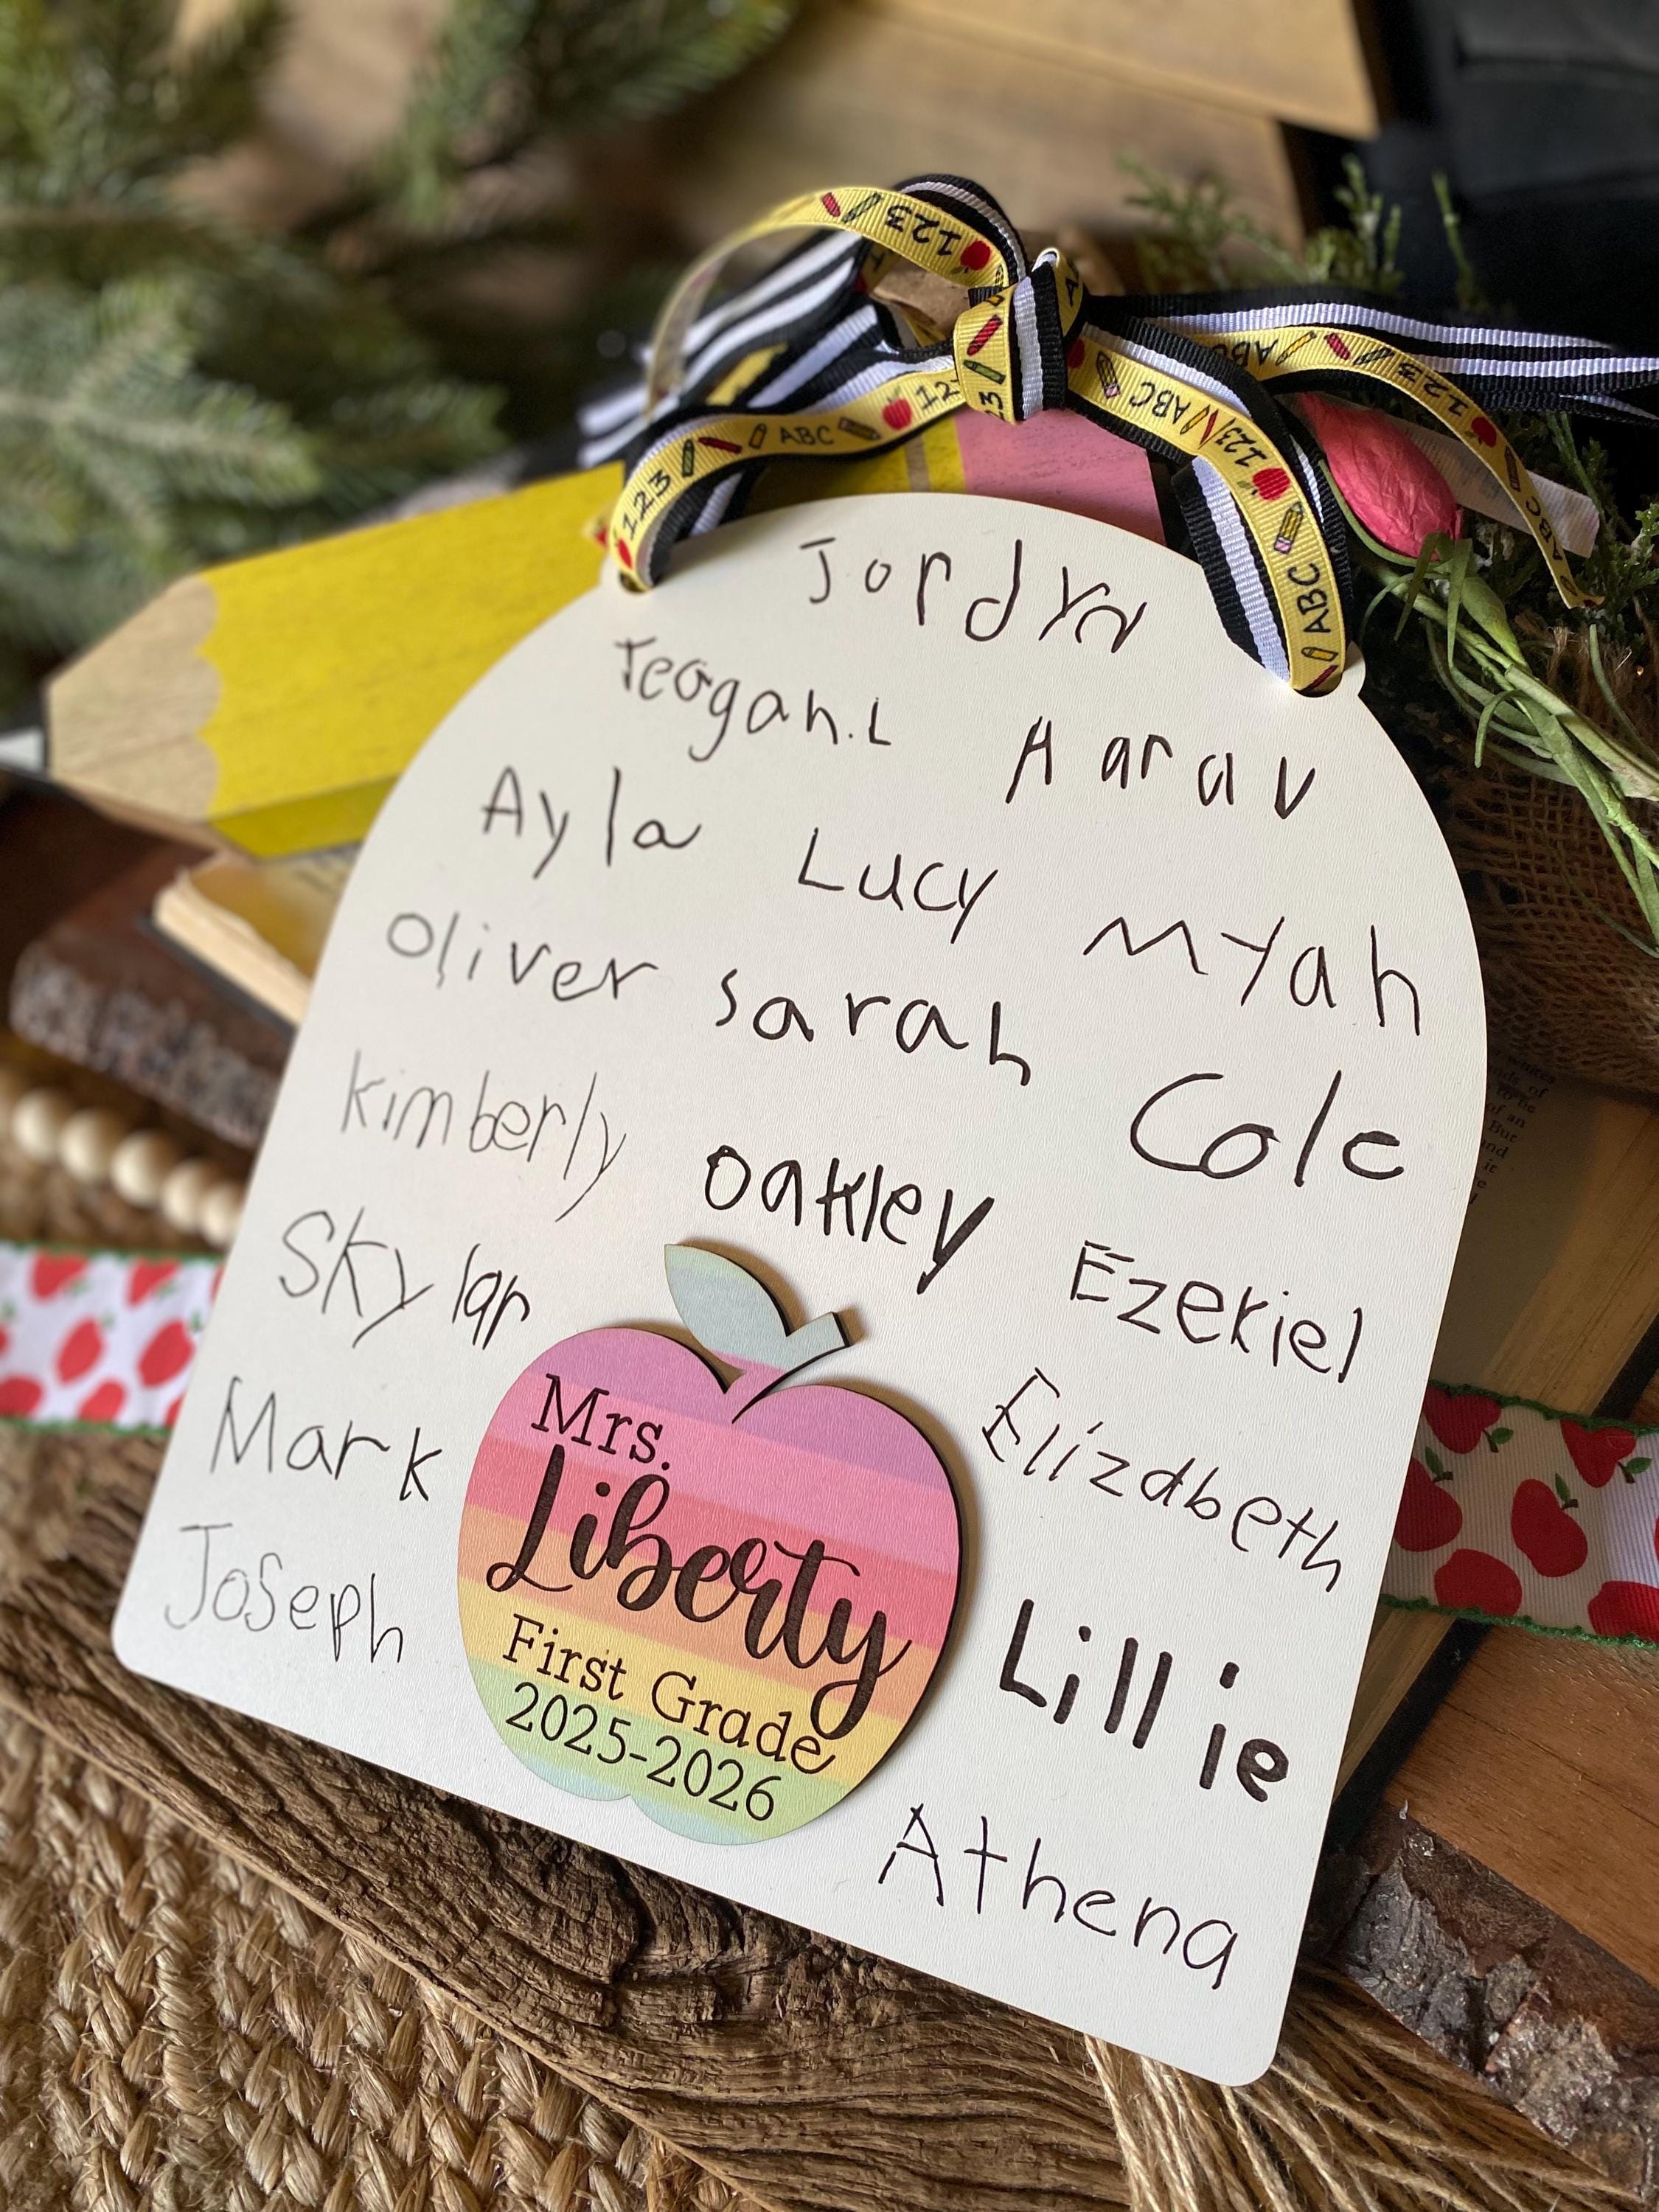 Jordyn
Teagan.L
Aarav
Ayla
Lucy
Myah
Oliver
Sarah
Cole
Kimberly
Oakley
Ezekiel
Skylar
Elizabeth
Mark
Joseph
Lillie
Athena
Mrs.
Liberty
First Grade
2025-2026
123
ABC
123
ABC
123
ABC
123
ABC
123
ABC